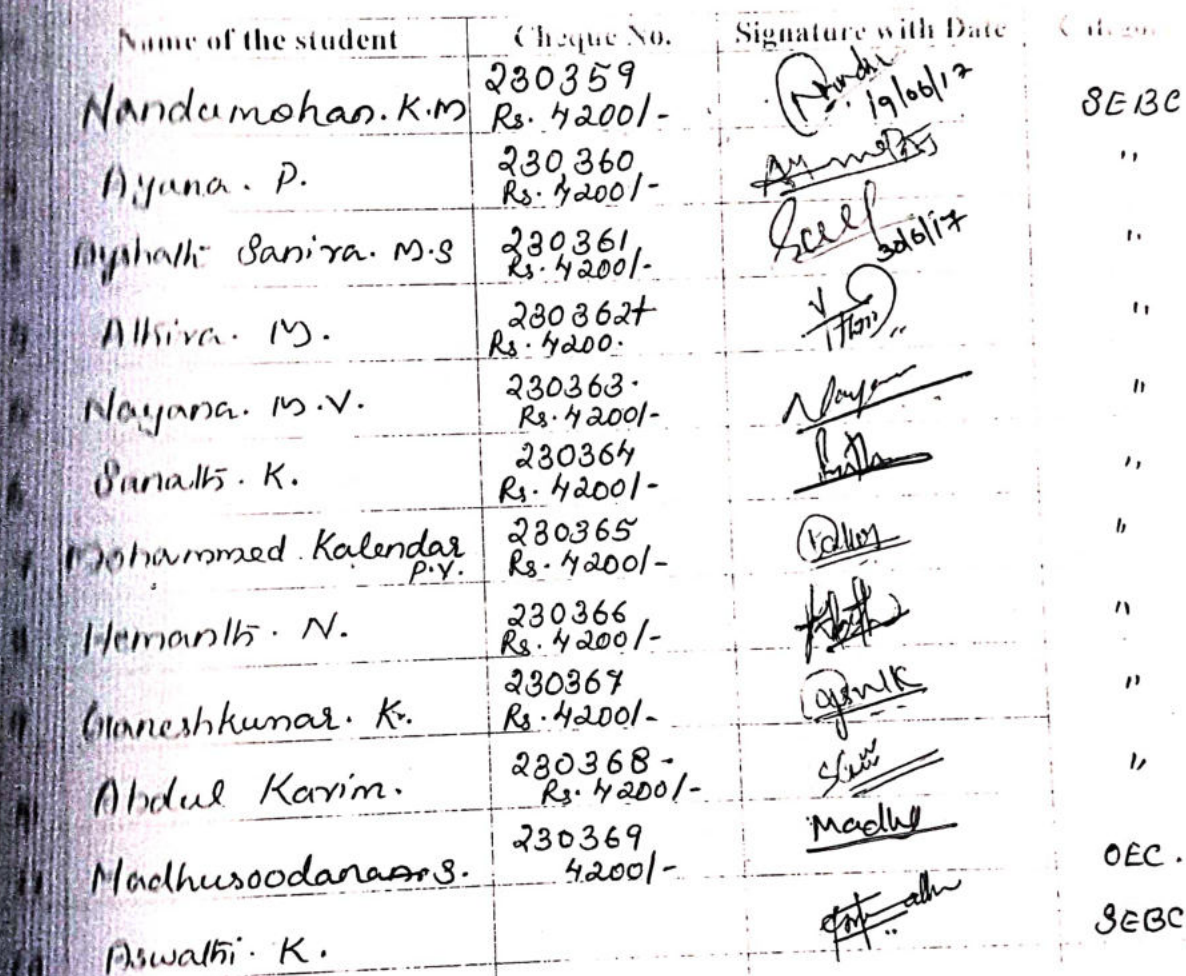 Name of the student Cheque No. Signature with Date
Nandumohan. K.M 230359 SEBC
Rs. 4200/- 19/06/17
Ayana. P. 230360 "
Rs. 4200/-
Sanira. M.S 230361 "
Rs. 4200/- 30/6/17
M. 230362 "
Rs. 4200.
Nayana. M.V. 230363. "
Rs. 4200/-
Sanath. K. 230364 "
Rs. 4200/-
Mohammed. Kalendar 230365 "
P.Y. Rs. 4200/-
Hemanth. N. 230366 "
Rs. 4200/-
Ganeshkumar. K. 230367 "
Rs. 4200/-
Abdul Karim. 230368- "
Rs. 4200/-
230369 Madhu
S. 4200/- OEC.
Aswathi. K. SEBC